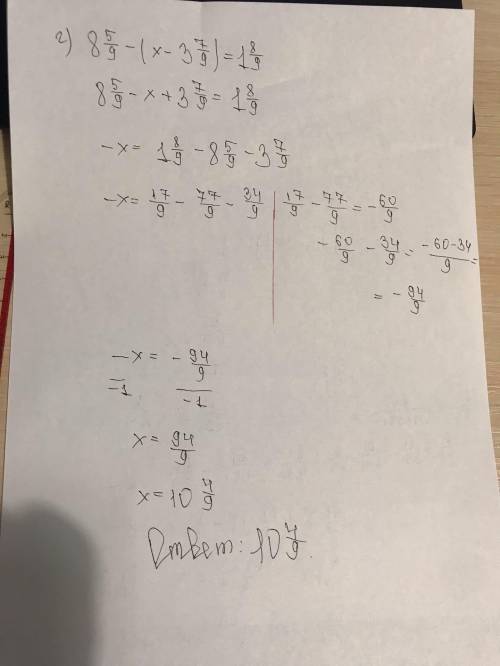 г) 8 5/9 - (x - 3 7/9) = 1 8/9
8 5/9 - x + 3 7/9 = 1 8/9
-x = 1 8/9 - 8 5/9 - 3 7/9
-x = 17/9 - 77/9 - 34/9
17/9 - 77/9 = -60/9
-60/9 - 34/9 = (-60-34)/9 =
= -94/9
-x/-1 = (-94/9)/-1
x = 94/9
x = 10 7/9
Ответ: 10 7/9.